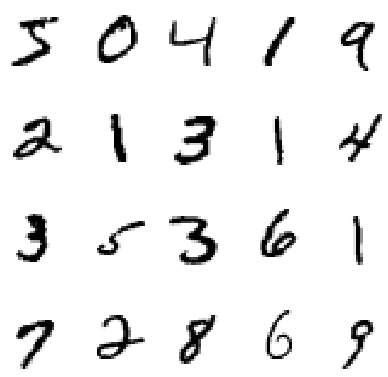 5 0 4 1 9
2 1 3 1 4
3 5 3 6 1
7 2 8 6 9